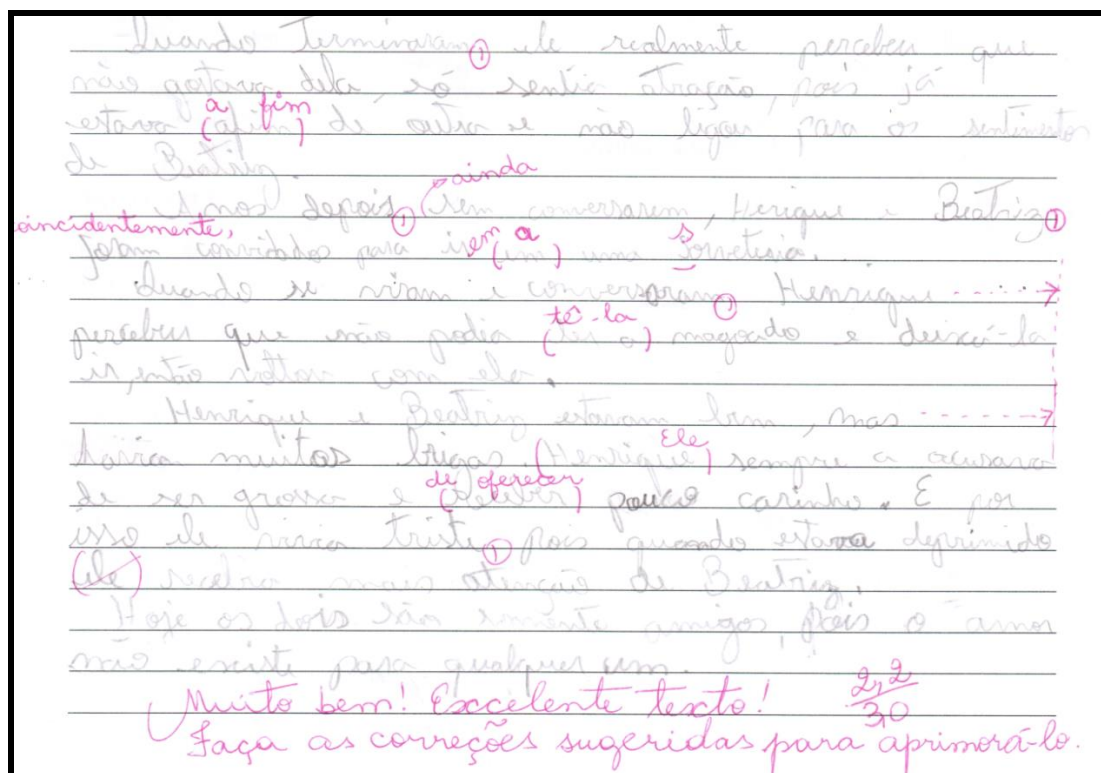 Quando Terminaram ① ele realmente percebeu que
não gostava dela, só sentia atração, pois já
a fim
estava (afim) de outra e não ligou para os sentimentos
de Beatriz.
ainda
Anos depois ① (sem conversarem, Herique e Beatriz ①
oincidentemente,
em a s
foram convidados para ir (em) uma sorveteria.
Quando se viram e conversaram ① Henrique
tê-la
percebeu que não podia (ter a) magoado e deixá-la
ir, então voltou com ela.
Henrique e Beatriz estavam bem, mas
Ele
havia muitas brigas. (Henrique) sempre a acusava
de oferecer
de ser grossa e pouco carinho. E por
isso ele vivia triste ① pois quando estava deprimido
(ele) recebia mais atenção de Beatriz.
Hoje os dois são somente amigos, pois o amor
não existe para qualquer um.
Muito bem! Excelente texto! 2,2/3,0
Faça as correções sugeridas para aprimorá-lo.